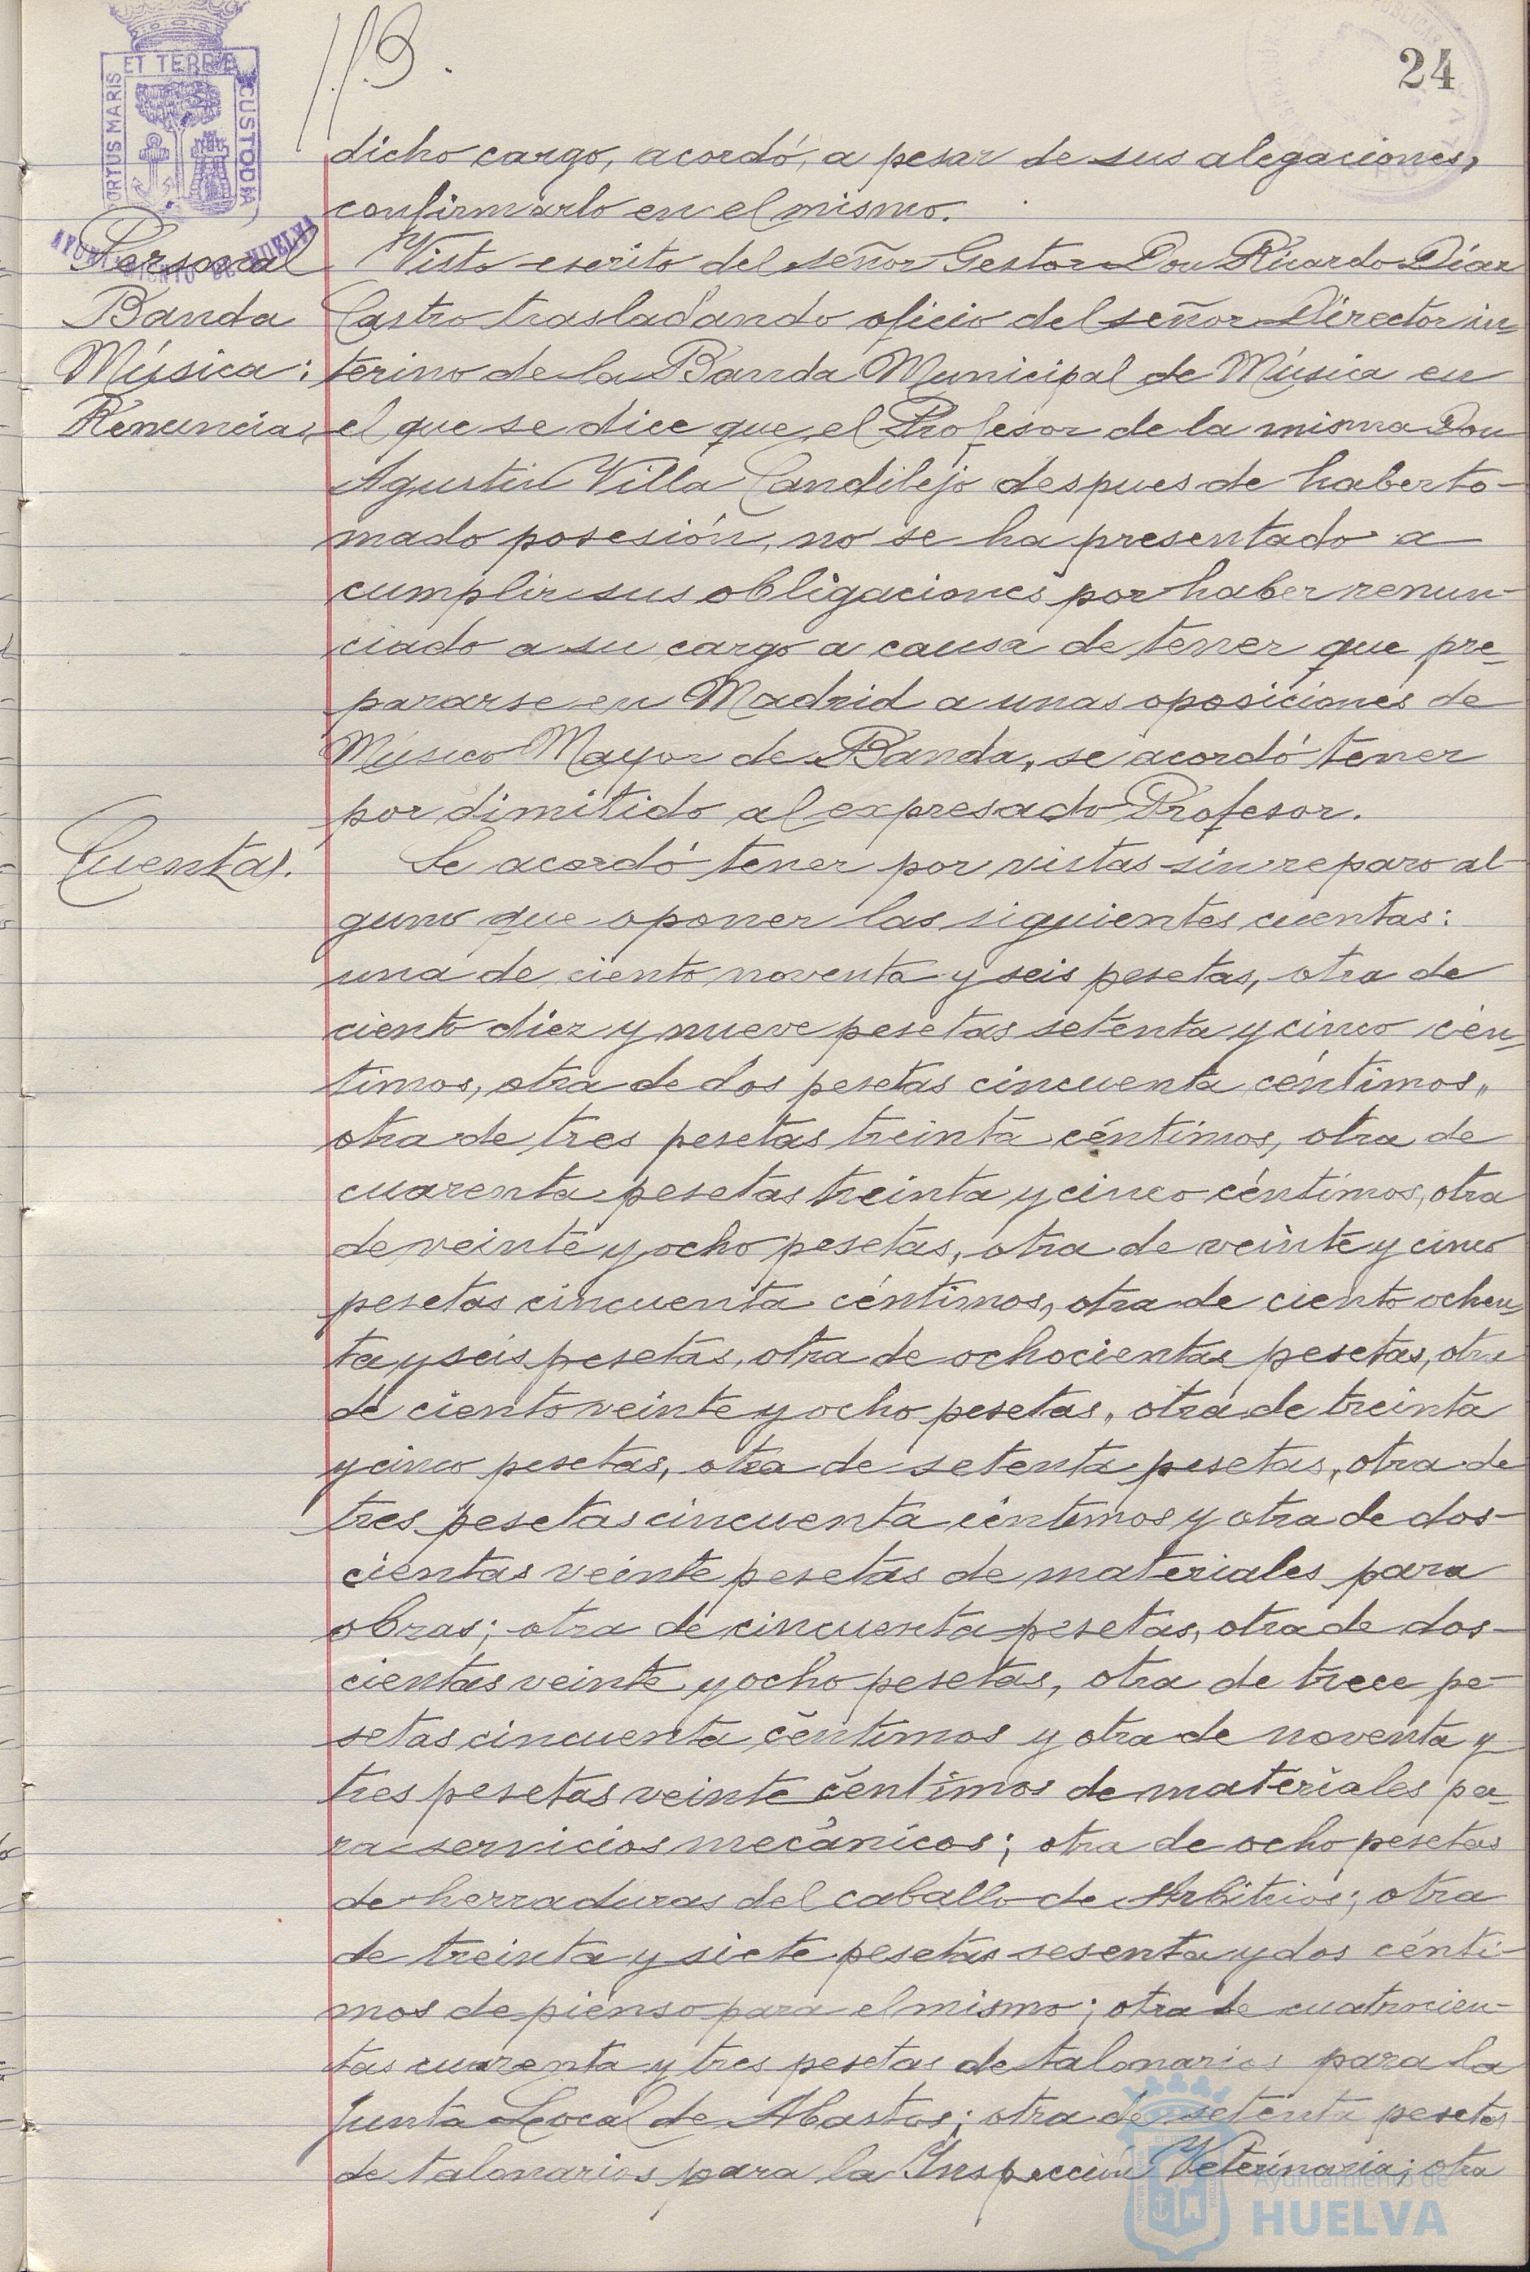 24
PORTUS MARIS ET TERRE CUSTODIA
AYUNTAMIENTO DE HUELVA
dicho cargo, acordó, a pesar de sus alegaciones,
confirmarlo en el mismo.
Personal
Banda
Música:
Renuncia.
Visto escrito del señor Gestor Don Ricardo Díaz
Castro trasladando oficio del señor Director in-
terino de la Banda Municipal de Música en
el que se dice que el Profesor de la misma Don
Agustin Villa Candilejo despues de haber to-
mado posesión, no se ha presentado a
cumplir sus obligaciones por haber renun-
ciado a su cargo a causa de tener que pre-
pararse en Madrid a unas oposiciones de
Músico Mayor de Banda, se acordó tener
por dimitido al expresado Profesor.
Cuentas.
Se acordó tener por vistas sin reparo al-
guno que oponer las siguientes cuentas:
una de ciento noventa y seis pesetas, otra de
ciento diez y nueve pesetas setenta y cinco cén-
timos, otra de dos pesetas cincuenta céntimos,
otra de tres pesetas treinta céntimos, otra de
cuarenta pesetas treinta y cinco céntimos, otra
de veinte y ocho pesetas, otra de veinte y cinco
pesetas cincuenta céntimos, otra de ciento ochen-
ta y seis pesetas, otra de ochocientas pesetas, otra
de ciento veinte y ocho pesetas, otra de treinta
y cinco pesetas, otra de setenta pesetas, otra de
tres pesetas cincuenta céntimos y otra de dos-
cientas veinte pesetas de materiales para
obras; otra de cincuenta pesetas, otra de dos-
cientas veinte y ocho pesetas, otra de trece pe-
setas cincuenta céntimos y otra de noventa y
tres pesetas veinte céntimos de materiales pa-
ra servicios mecánicos; otra de ocho pesetas
de herraduras del caballo de Arbitrios; otra
de treinta y siete pesetas sesenta y dos cénti-
mos de pienso para el mismo; otra de cuatrocien-
tas cuarenta y tres pesetas de talonarios para la
Junta Local de Abastos; otra de setenta pesetas
de talonarios para la Inspección Veterinaria; otra
Ayuntamiento de
HUELVA